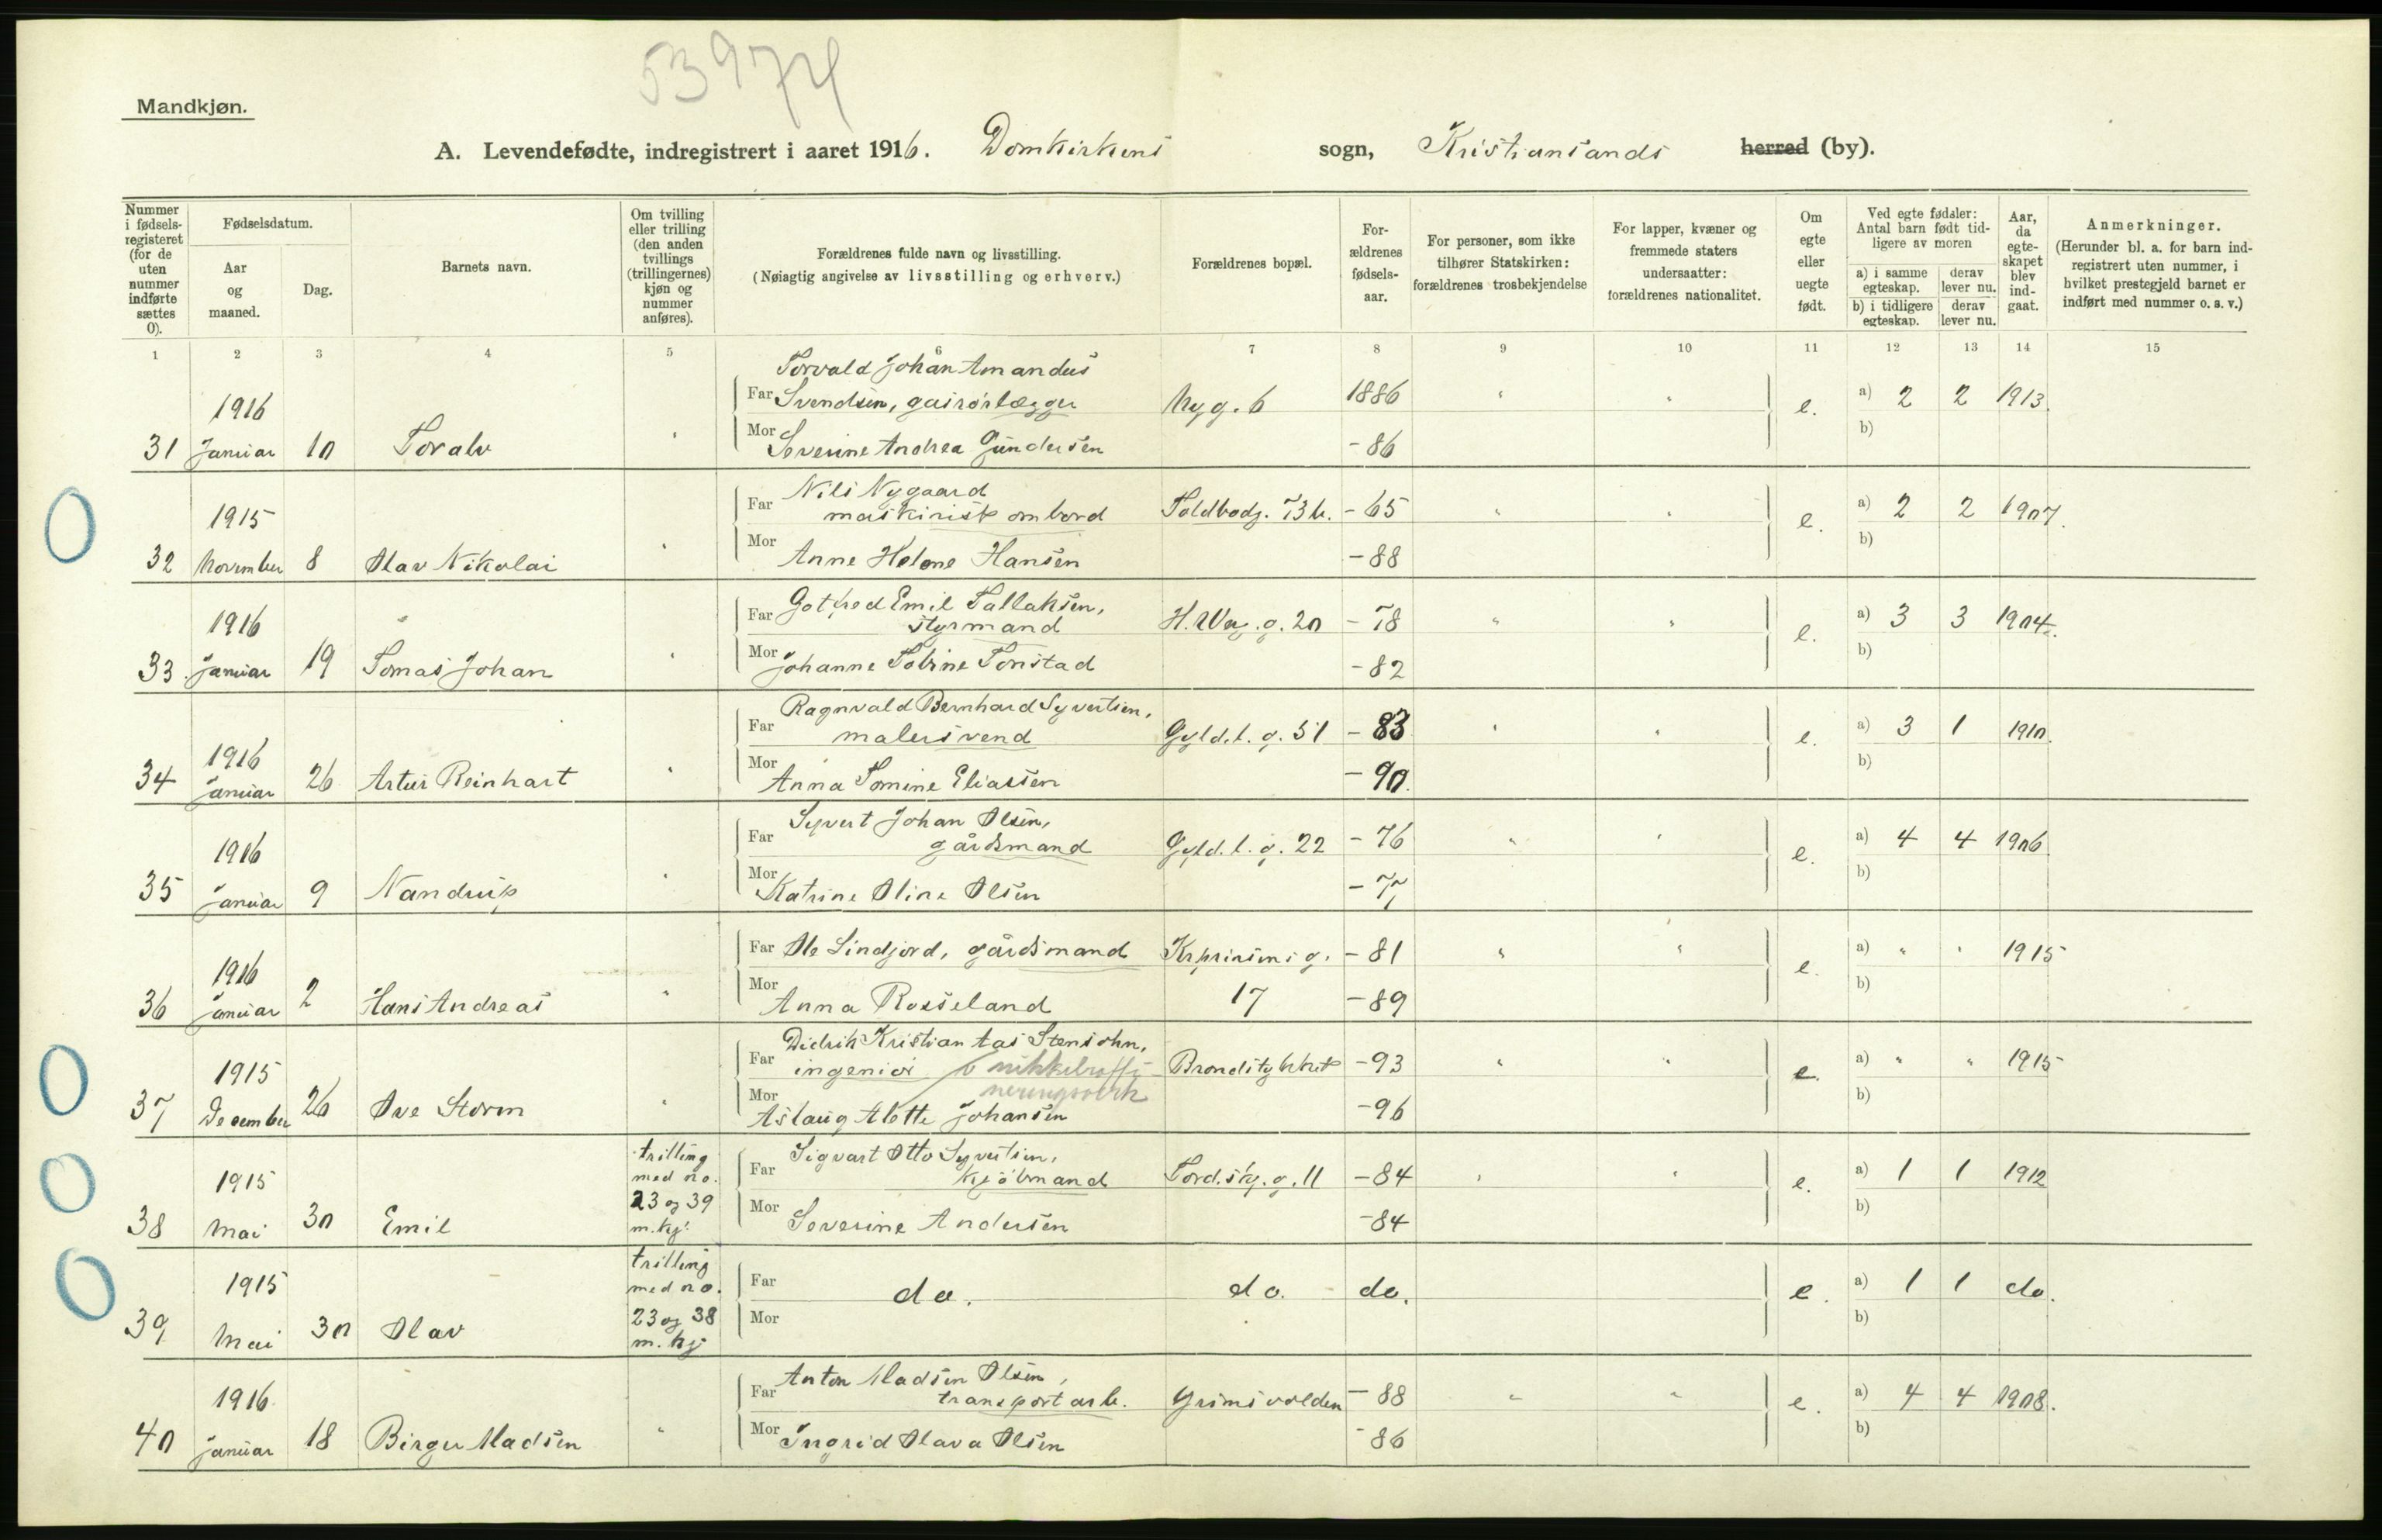 53974
Mandkjøn.
A. Levendefødte, indregistrert i aaret 1916. Domkirkens sogn, Kristiansands herred (by).
Nummer i fødsels-registeret (for de uten nummer indførte sættes 0).
Fødselsdatum.
Aar og maaned.
Dag.
Barnets navn.
Om tvilling eller trilling (den anden tvillings (trillingernes) kjøn og nummer anføres).
Forældrenes fulde navn og livsstilling.
(Nøiagtig angivelse av livsstilling og erhverv.)
Forældrenes bopæl.
For-ældrenes fødsels-aar.
For personer, som ikke tilhører Statskirken: forældrenes trosbekjendelse
For lapper, kvæner og fremmede staters undersaatter: forældrenes nationalitet.
Om egte eller uegte født.
Ved egte fødsler: Antal barn født tid-ligere av moren
a) i samme egteskap.
derav lever nu.
b) i tidligere egteskap.
derav lever nu.
Aar, da egte-skapet blev ind-gaat.
Anmerkninger.
(Herunder bl. a. for barn ind-registrert uten nummer, i hvilket prestegjeld barnet er indført med nummer o. s. v.)
1 2 3 4 5 6 7 8 9 10 11 12 13 14 15
Torvald Johan Amandus
1916 Far Svendsen, gasrörlægger Nyg. 6 1886 " " e. a) 2 2 1913.
31 Januar 10 Toralv " Mor Severine Andrea Gundersen - 86 b)
Nils Nygaard
1915 Far maskinist ombord Toldbodg. 73 b. - 65 " " e. a) 2 2 1907.
32 November 8 Olav Nikolai " Mor Anne Helene Hansen - 88 b)
Gotfred Emil Tallaksen,
1916 Far styrmand H. Werg. g. 20 - 78 " " e. a) 3 3 1904.
33 Januar 19 Tomas Johan " Mor Johanne Tobine Tonstad - 82 b)
Ragnvald Bernhard Syvertsen,
1916 Far malersvend Gyld.l. g. 51 - 83 " " e. a) 3 1 1910.
34 Januar 26 Artur Reinhart " Mor Anna Tomine Eliassen - 90. b)
Syvert Johan Olsen,
1916 Far gårdsmand Gyld. l. g. 22 - 76 " " e. a) 4 4 1906
35 Januar 9 Nandrup " Mor Katrine Oline Olsen - 77 b)
1916 Far Ole Lindjord, gårdsmand Krprinsens g. - 81 " " e. a) " " 1915
36 Januar 2 Hans Andreas " Mor Anna Rosseland 17 - 89 b)
Didrik Kristian Aas Stensohn,
1915 Far ingeniör v nikkelraffi- Brondstykket - 93 " " e. a) " " 1915
neringsverk
37 December 26 Ove Storm " Mor Aslaug Alette Johansen - 96 b)
trilling Sigvart Otto Syvertsen,
1915 med no. Far kjöbmand Tord.skj. g. 11 - 84 " " e. a) 1 1 1912
23 og 39
38 Mai 30 Emil m. kj. Mor Severine Andersen - 84 b)
trilling
1915 med no. Far do. do. do. e. a) 1 1 do.
23 og 38
39 Mai 30 Olav m. kj Mor b)
Anton Madsen Olsen,
1916 Far transport arb. Grimsvolden - 88 " " e. a) 4 4 1908.
40 Januar 18 Birger Madsen " Mor Ingrid Olava Olsen - 86 b)